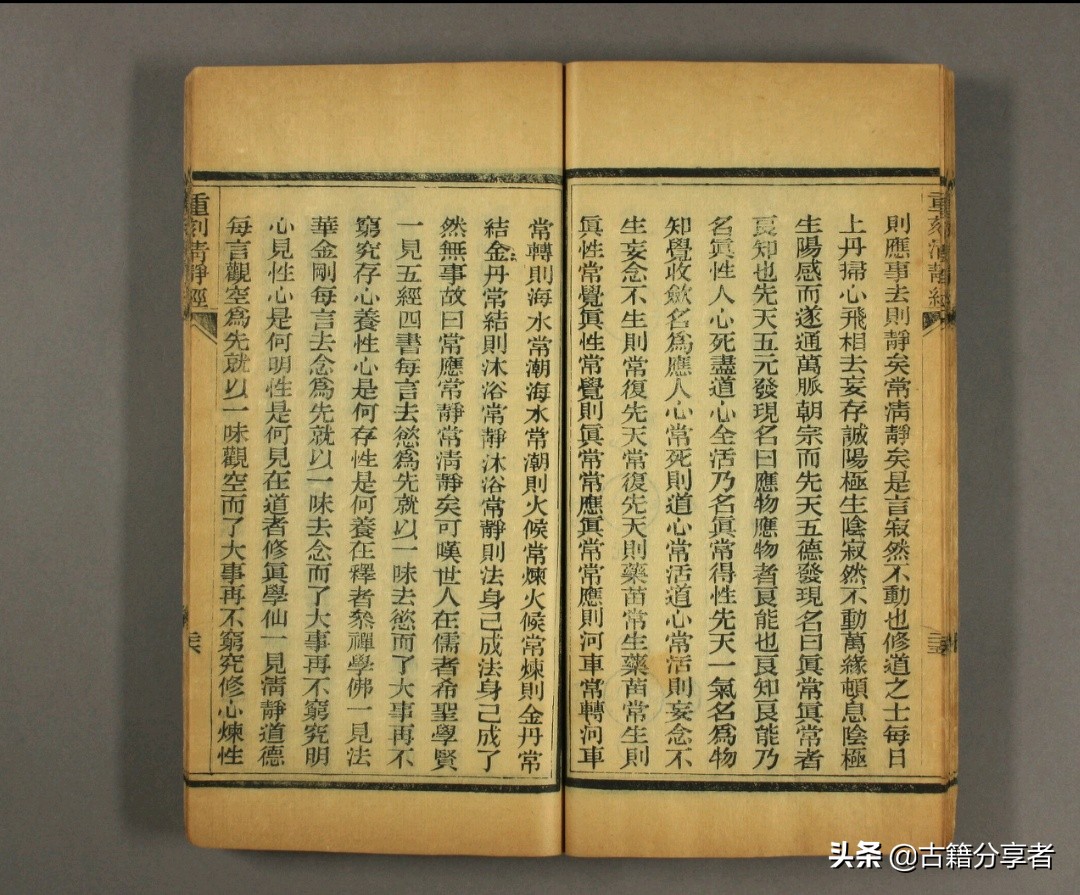 則應事去則靜矣常清靜矣是言寂然不動也修道之士每日
上丹掃心飛相去妄存誠陽極生陰寂然不動萬緣頓息陰極
生陽感而遂通萬脈朝宗而先天五德發現名曰眞常眞常者
良知也先天五元發現名曰應物應物者良能也良知良能乃
名眞性人心死盡道心全活乃名眞常得性先天一氣名爲物
知覺收斂名爲應人心常死則道心常活道心常活則妄念不
生妄念不生則常復先天常復先天則藥苗常生藥苗常生則
眞性常覺眞性常覺則眞常常應眞常常應則河車常轉河車
常轉則海水常潮海水常潮則火候常煉火候常煉則金丹常
結金丹常結則沐浴常靜沐浴常靜則法身已成法身已成了
然無事故曰常應常靜常清靜矣可嘆世人在儒者希聖學賢
一見五經四書每言去慾爲先就以一味去慾而了大事再不
窮究存心養性心是何存性是何養在釋者叅禪學佛一見法
華金剛每言去念爲先就以一味去念而了大事再不窮究明
心見性心是何明性是何見在道者修眞學仙一見清靜道德
每言觀空爲先就以一味觀空而了大事再不窮究修心煉性
重刻清靜經
重刻清靜經
头条 @古籍分享者